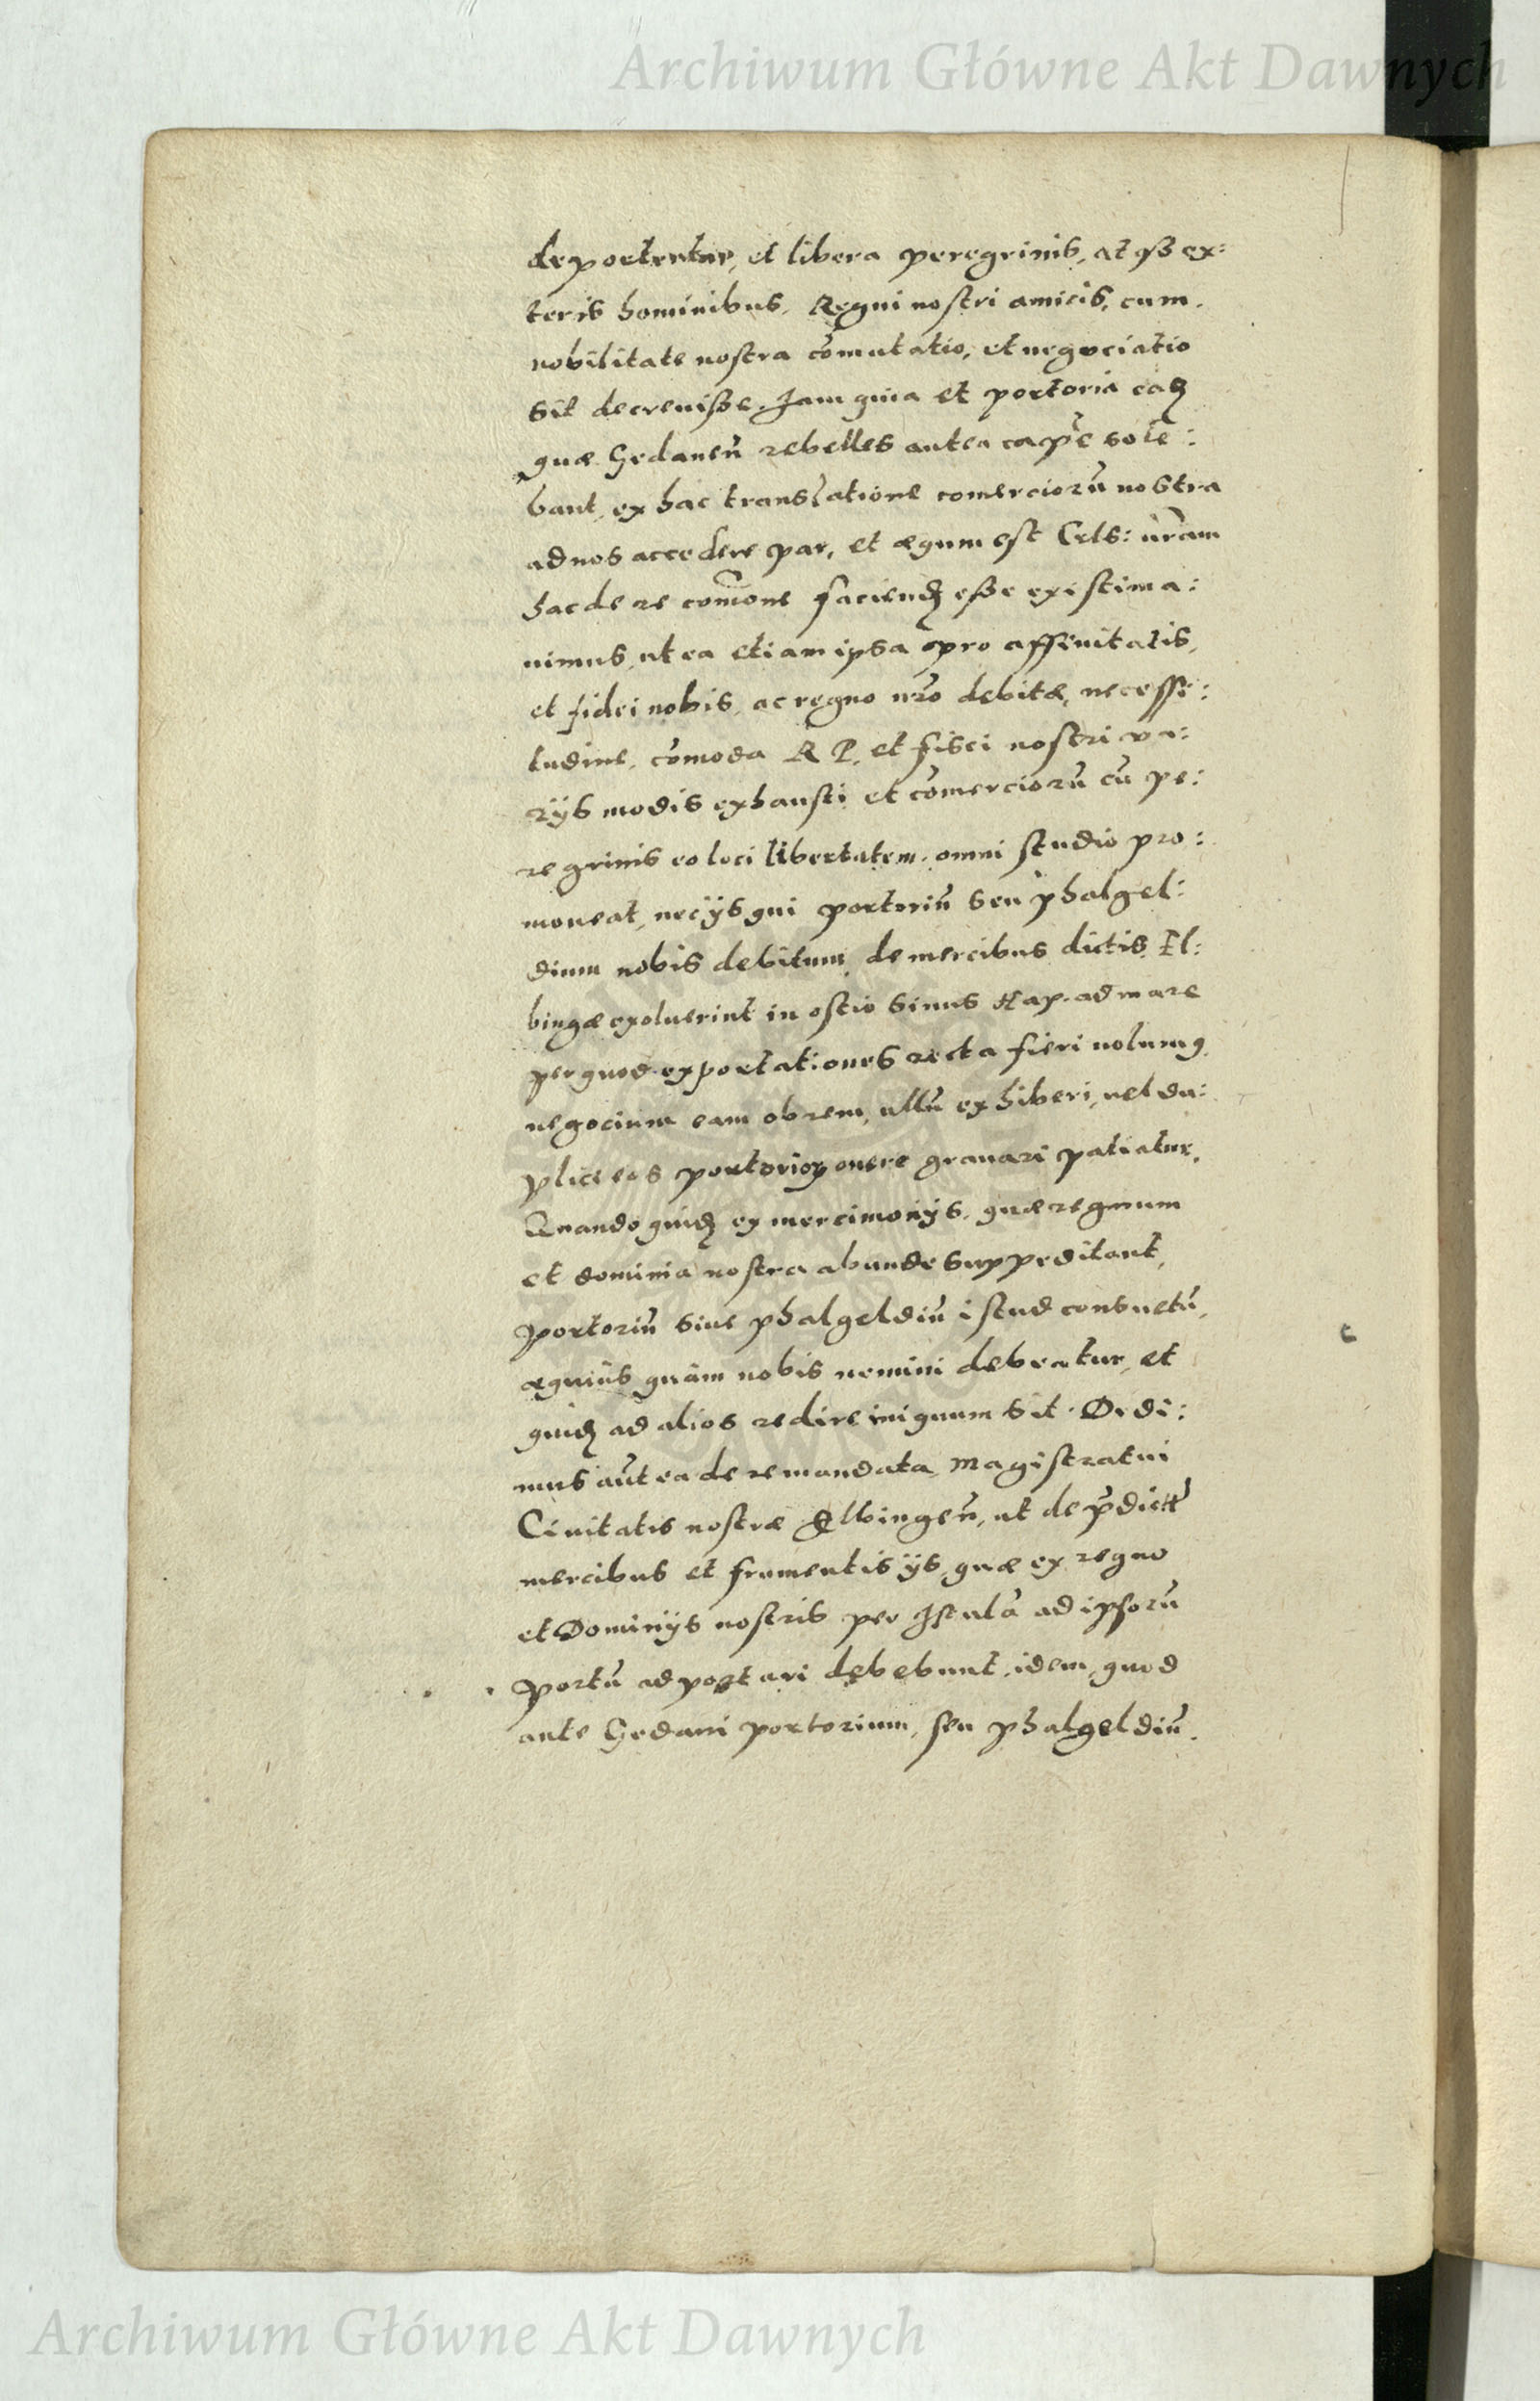 Archiwum Główne Akt Dawnych
deportentur, et libera peregrinis, atqȝ ex:
teris hominibus, Regni nostri amicis, cum
nobilitate nostra com̃utatio, et negociatio
sit decrevisse. Jam quia et portoria eaȝ
quæ Gedaneñ rebelles antea cape͂ sole:
bant, ex hac translatione comercioru͂ nostra
ad nos accedere par, et æquum est Cels: ur̃am
hac de re com̃one faciendȝ esse existima:
uimus, ut ea etiam ipsa pro affinitatis,
et fidei nobis, ac regno nr̃o debitæ, necessi:
tudine, com̃oda R P. et fisci nostri va:
rijs modis exhausti et com̃ercioru͂ cu͂ pe:
regrinis eo loci libertatem, omni studio pro:
moueat, nec ijs qui portoriu͂ seu phalgel:
dium nobis debitum, de mercibus dictis El:
bingæ exoluerint in ostio sinus Hap. ad mare
per quod exportationes recta fieri uolumꝰ
negocium eam ob rem, ullu͂ exhiberi, uel du:
plici eos portorioȝ onere grauari patiatur.
Quandoquidȝ ex mercimonijs, quæ regnum
et dominia nostra abunde suppeditant,
portoriu͂ siue phalgeldiu͂ istud consuetu͂,
æquius quàm nobis nemini debeatur, et
quidȝ ad alios redire iniquum sit. Dedi:
mus aut͂ ea de re mandata, Magistratui
Ciuitatis nostræ Elbingeñ, ut de p͂dictis
mercibus et frumentis ijs, quæ ex regno
et Dominijs nostris per Istula͂ ad ipsoru͂
portu͂ adportari debebunt, idem, quod
ante Gedani portorium, seu phalgeldiu͂.
Archiwum Główne Akt Dawnych